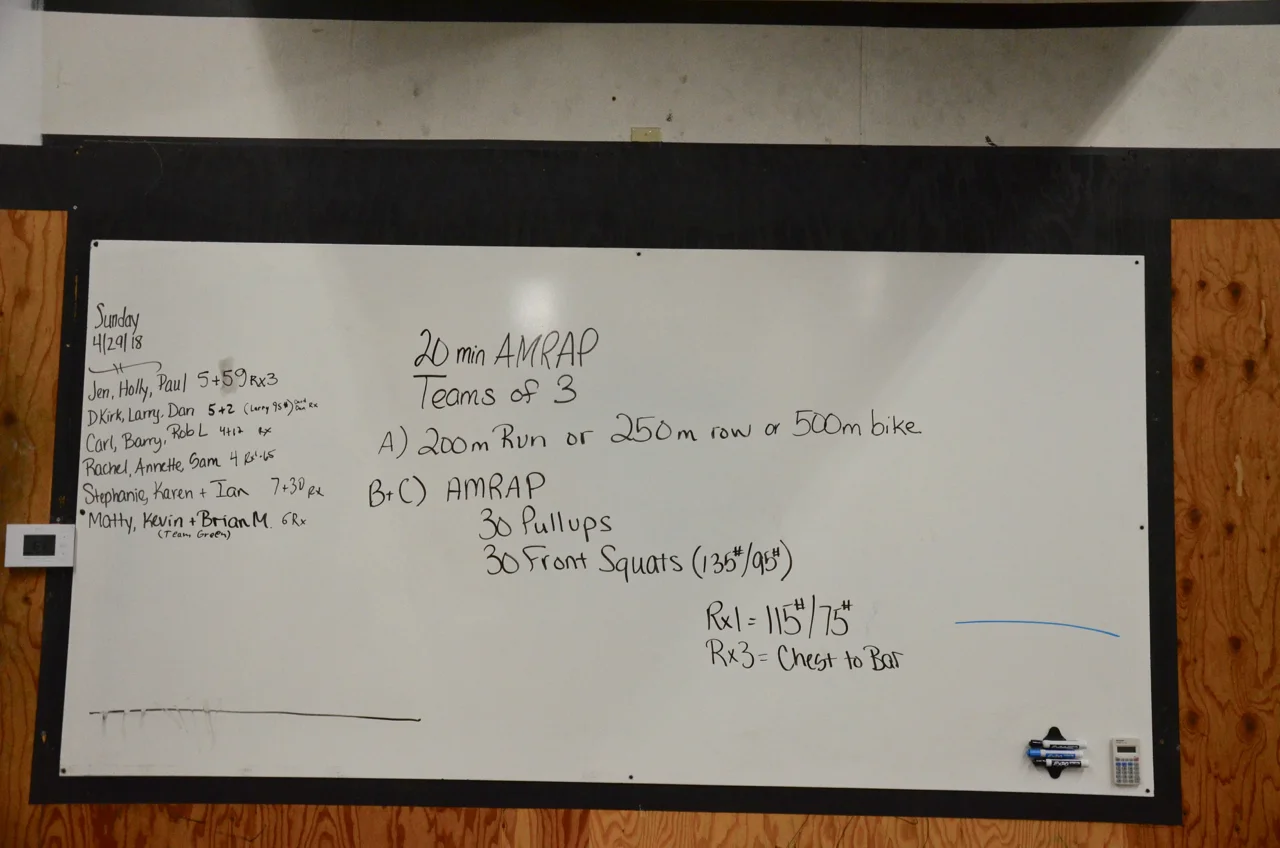 Sunday
4/29/18
Jen, Holly, Paul 5+59 Rx3
DKirk, Larry, Dan 5+2 (Larry 95#) Dan Rx
Carl, Barry, Rob L 4+12 Rx
Rachel, Annette, Sam 4
Stephanie, Karen + Ian 7+30 Rx
Matty, Kevin + Brian M. 6 Rx
(Team Green)
20 min AMRAP
Teams of 3
A) 200m Run or 250m row or 500m bike
B+C) AMRAP
30 Pullups
30 Front Squats (135#/95#)
Rx1 = 115#/75#
Rx3 = Chest to Bar